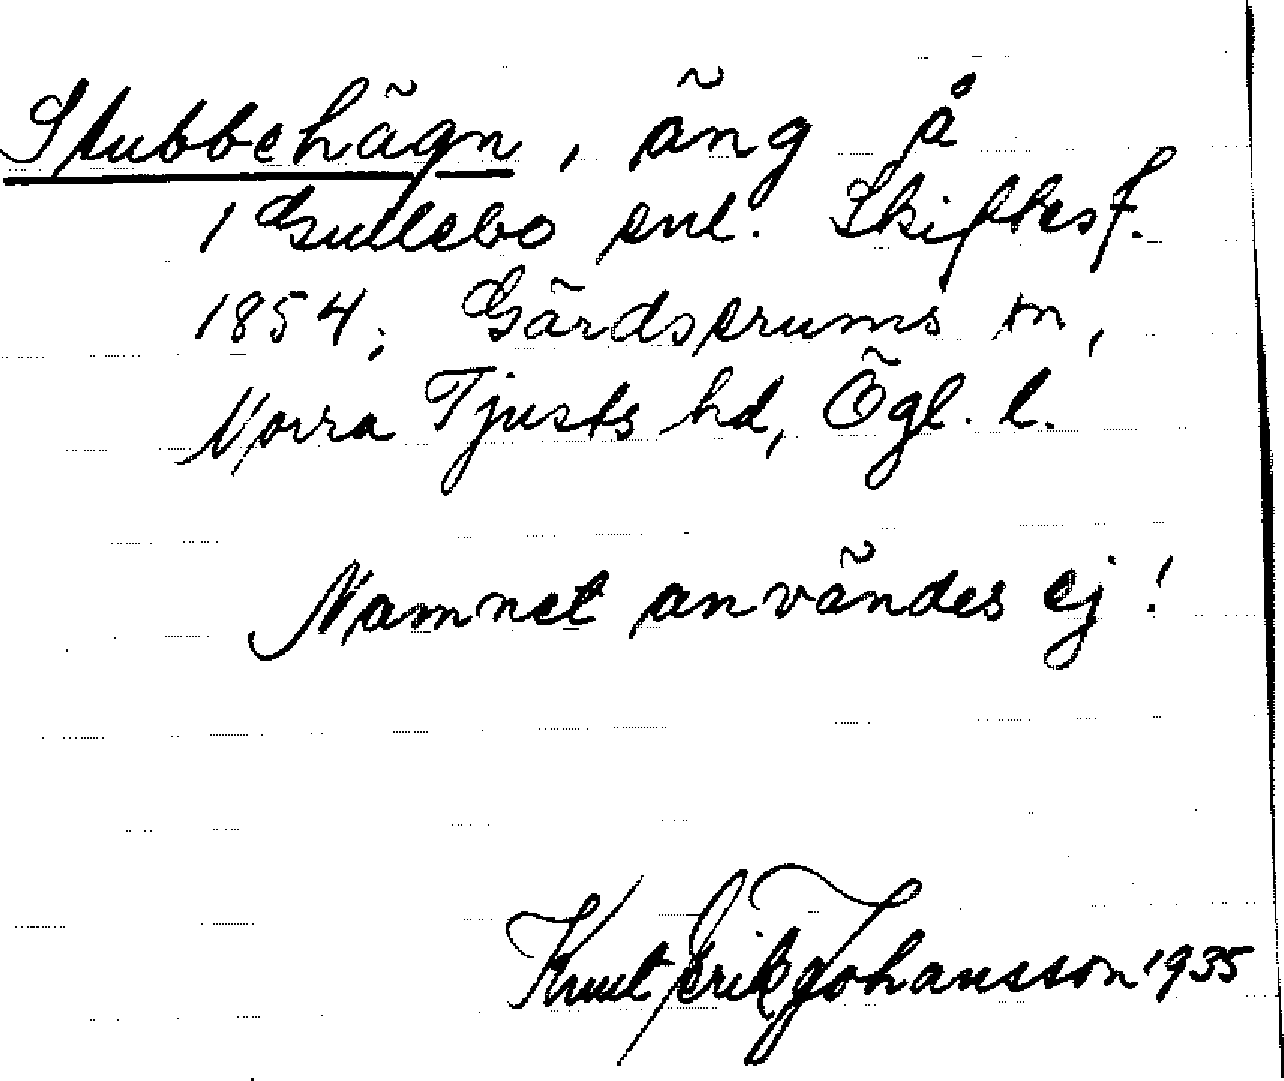 Stubbehägn, äng å
1 Gullebo enl. Skiftesf.
1854; Gärdserums sn,
Norra Tjusts hd, Ögl. l.
Namnet användes ej!
Knut Erik Johansson 1935